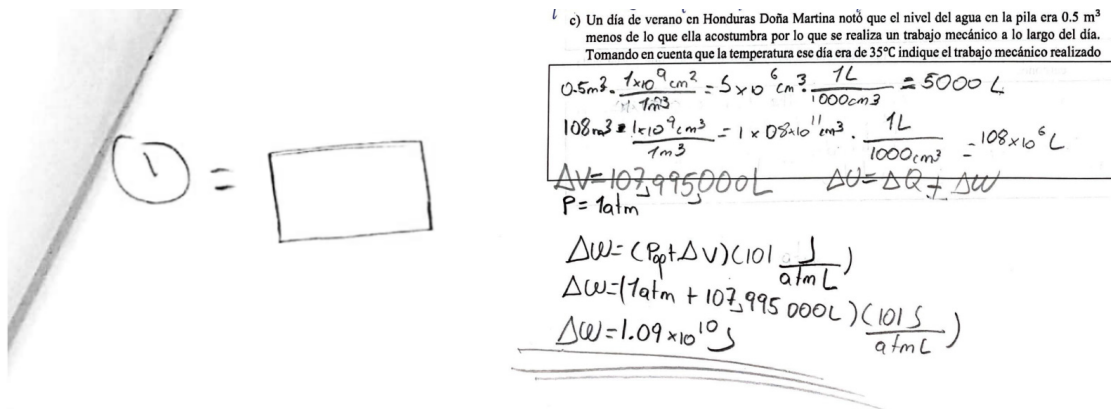 1 =
c) Un día de verano en Honduras Doña Martina notó que el nivel del agua en la pila era 0.5 m³
menos de lo que ella acostumbra por lo que se realiza un trabajo mecánico a lo largo del día.
Tomando en cuenta que la temperatura ese día era de 35°C indique el trabajo mecánico realizado
0.5m³ · 1x10⁹cm² / 1m³ = 5x10⁶cm³ · 1L / 1000cm3 = 5000 L
108m3 · 1x10⁹cm³ / 1m3 = 1x08x10¹¹cm³ · 1L / 1000cm³ = 108x10⁶ L
ΔV=107,995,000L ΔU=ΔQ+ΔW
P= 1atm
ΔW=(Pop+ΔV)(101 J / atm L)
ΔW=(1atm + 107,995 000L)(101 J / atm L)
ΔW=1.09x10¹⁰J